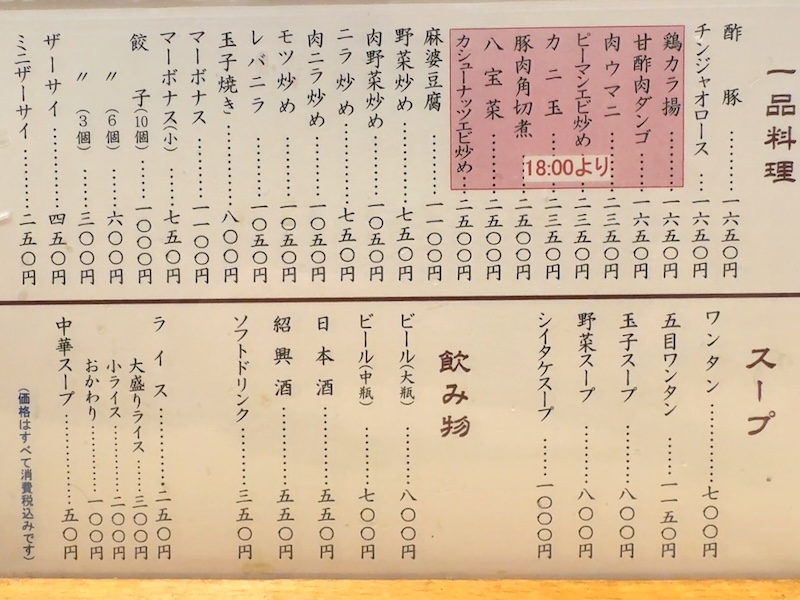 一品料理
酢豚………一六五〇円
チンジャオロース…一六五〇円
鶏カラ揚………一六五〇円
甘酢肉ダンゴ……一六五〇円
肉ウマニ………二三五〇円
ピーマンエビ炒め…二三五〇円
カニ玉………二三五〇円
豚肉角切煮……二五〇〇円
八宝菜………二五〇〇円
カシューナッツエビ炒め…二五〇〇円
18:00より
麻婆豆腐………一一〇〇円
野菜炒め………七五〇円
肉野菜炒め……一〇五〇円
ニラ炒め………七五〇円
肉ニラ炒め……一〇五〇円
モツ炒め………一〇五〇円
レバニラ………一〇五〇円
玉子焼き………八〇〇円
マーボナス……一一〇〇円
マーボナス(小)…七五〇円
餃子(10個)……一〇〇〇円
〃(6個)……六〇〇円
〃(3個)……三〇〇円
ザーサイ………四五〇円
ミニザーサイ……二五〇円
スープ
ワンタン………七〇〇円
五目ワンタン……一一五〇円
玉子スープ……八〇〇円
野菜スープ……八〇〇円
シイタケスープ……一〇〇〇円
飲み物
ビール(大瓶)………八〇〇円
ビール(中瓶)………七〇〇円
日本酒………五五〇円
紹興酒………五五〇円
ソフトドリンク……三五〇円
ライス………二五〇円
大盛りライス……三〇〇円
小ライス………二〇〇円
おかわり………一〇〇円
中華スープ………五〇円
(価格はすべて消費税込みです)